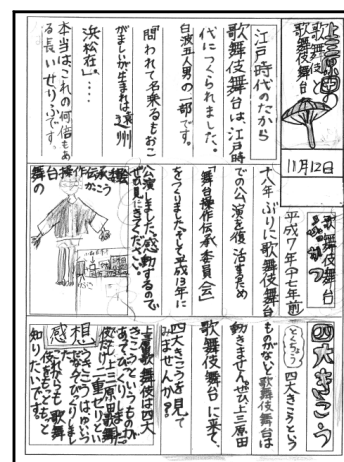 上三原田の
歌舞伎と
歌舞伎舞台
11月12日
江戸時代のたから
歌舞伎舞台は、江戸時
代につくられました。
白浪五人男の一部です。
「問われて名乗るもおこ
がましいが生まれは遠州
浜松在」。……
本当は、これの何倍もあ
る長いせりふです。
歌舞伎
ふっかつ
平成7年(十七年前)
十八年ぶりに歌舞伎舞台
での公演を復活するため
「舞台操作伝承委員会」
をつくりました。そして平成13年に
公演しました。感動するので
ぜひ見にきてください。
舞台操作伝承
の かっこう
四大きこう
とくちょう
四大きこうという
ものがないと歌舞伎舞台は
動きません。ぜひ上三原田
歌舞伎舞台に来て、
四大きこうを見て
みませんか?
感想
歌舞伎は四大
きこうというものが
あってびっくりしました。
上三原田歌舞
二重ゼリとい
これからも歌舞
伎をもっともっと
知りたいです。